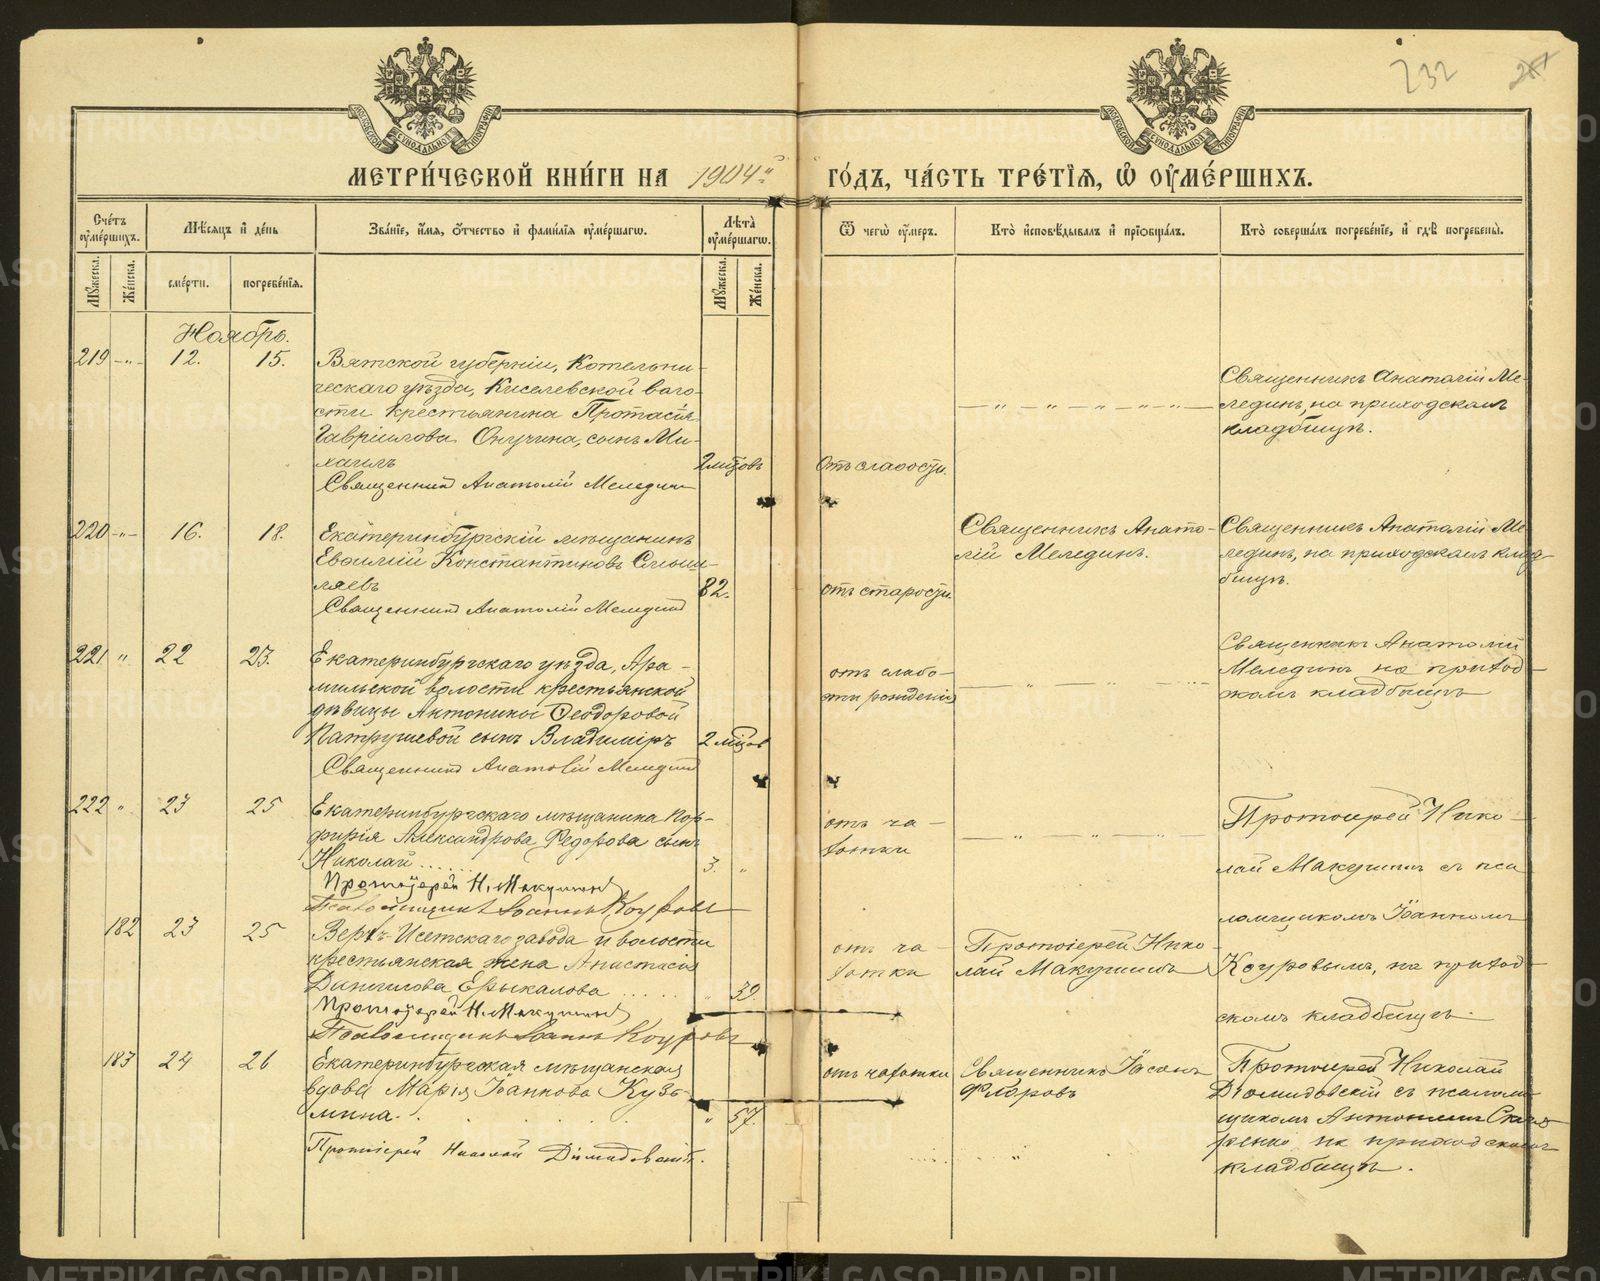 232
МОСКОВСКОЙ СѴНОДАЛЬНОЙ ТИПОГРАФІИ
МОСКОВСКОЙ СѴНОДАЛЬНОЙ ТИПОГРАФІИ
МЕТРИ́ЧЕСКОЙ КНИ́ГИ НА 1904й ГО́ДЪ, ЧА́СТЬ ТРЕ́ТІѦ, Ѽ ОУ҆МЕ́РШИХЪ.
Сче́тъ оу҆ме́ршихъ.
Мѣ́сяцъ и҆ де́нь
Зва́ніе, и҆́мя, о҆́тчество и҆ фами́лія оу҆ме́ршагѡ.
Лѣ́та оу҆ме́ршагѡ.
Ѿ чегѡ̀ оу҆́меръ.
Кто̀ и҆сповѣ́дывалъ и҆ прїѡбща́лъ.
Кто̀ соверша́лъ погребе́ніе, и҆ гдѣ̀ погребены̀.
Му́жеска.
Же́нска.
сме́рти.
погребе́нія.
Му́жеска.
Же́нска.
Ноябрь.
219 -"- 12. 15. Вятской губерніи, Котельни-
ческаго уѣзда, Киселевской воло-
сти крестьянина Протасія
Гавріилова Онучина, сынъ Ми-
хаилъ 2 мѣсцовъ отъ слабости.
Священникъ Анатолій Мелединъ
Священникъ Анатолій Ме-
лединъ, на приходскомъ
кладбищѣ.
220 -"- 16. 18. Екатеринбургскій мѣщанинъ
Евѳимій Константиновъ Смыш-
ляевъ 82. отъ старости.
Священникъ Анатолій Мелединъ
Священникъ Анато-
лій Мелединъ.
Священникъ Анатолій Ме-
лединъ, на приходскомъ клад-
бищѣ.
221 " 22 23. Екатеринбургскаго уѣзда, Ара-
мильской волости крестьянской
дѣвицы Антонины Ѳеодоровой
Патрушевой сынъ Владиміръ 2 мѣсцов
Священникъ Анатолій Мелединъ
отъ слабо-
сти рожденія
Священникъ Анатолій
Мелединъ на приход-
скомъ кладбищѣ
222 " 23 25 Екатеринбургскаго мѣщанина Пор-
фирія Александрова Ѳедорова сынъ
Николай ..... 3. "
Протоіерей Н. Макушинъ
Псаломщикъ Іоаннъ Коуровъ
отъ ча-
хотки
Протоіерей Нико-
лай Макушинъ съ пса
ломщикомъ Іоанномъ
Коуровымъ, на приход-
скомъ кладбищѣ.
182 23 25 Верхъ-Исетскаго завода и волости
крестьянская жена Анастасія
Данилова Ерыкалова ...... " 39.
Протоіерей Н. Макушинъ
Псаломщикъ Іоаннъ Коуровъ
отъ ча-
хотки
Протоіерей Нико-
лай Макушинъ
183 24 26 Екатеринбургская мѣщанская
вдова Марія Іоаннова Кузь-
мина. . " 57.
Протоіерей Николай Діомидовскій.
отъ чахотки
Священникъ Іасонъ
Флоровъ
Протоіерей Николай
Діомидовскій съ псалом-
щикомъ Антониемъ
на приходскомъ
кладбищѣ.
METRIKI.GASO-URAL.RU